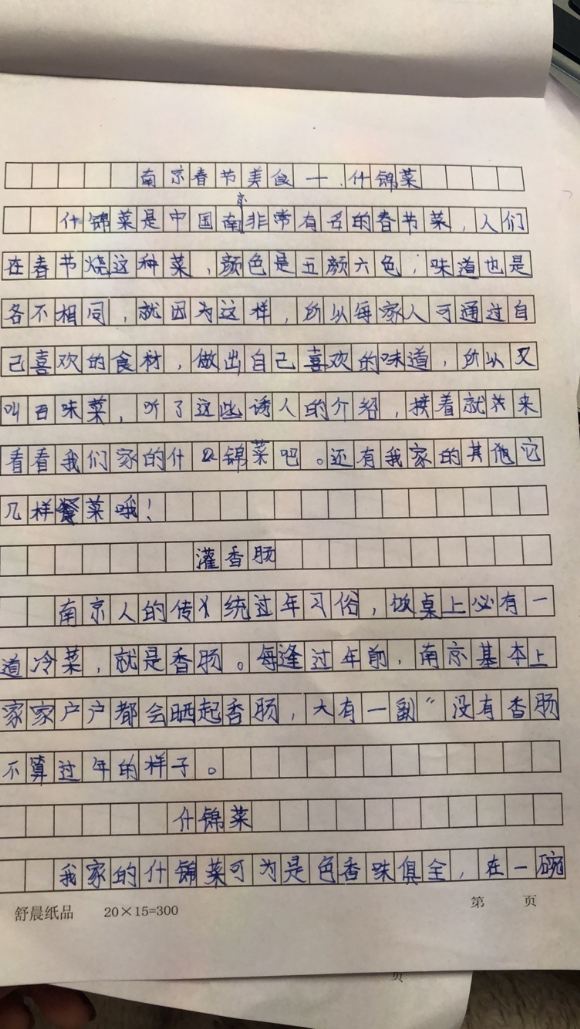 南京春节美食——什锦菜
什锦菜是中国南京非常有名的春节菜，人们
在春节烧这种菜，颜色是五颜六色，味道也是
各不相同，就因为这样，所以每家人可通过自
己喜欢的食材，做出自己喜欢的味道，所以又
叫百味菜，听了这些诱人的介绍，接着就来
看看我们家的什锦菜吧。还有我家的其他它
几样餐菜哦！
灌香肠
南京人的传统过年习俗，饭桌上必有一
道冷菜，就是香肠。每逢过年前，南京基本上
家家户户都会晒起香肠，大有一副“没有香肠
不算过年的样子。
什锦菜
我家的什锦菜可为是色香味俱全，在一碗
舒晨纸品 20×15=300 第 页
页